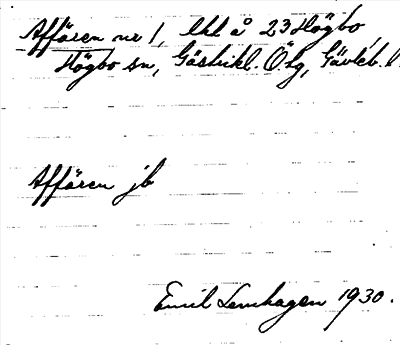 Affären nr 1, lht å 23 Högbo,
Högbo sn, Gästrikl. Ö tg, Gävleb. l.
Affären jb
Emil Lenhagen 1930.